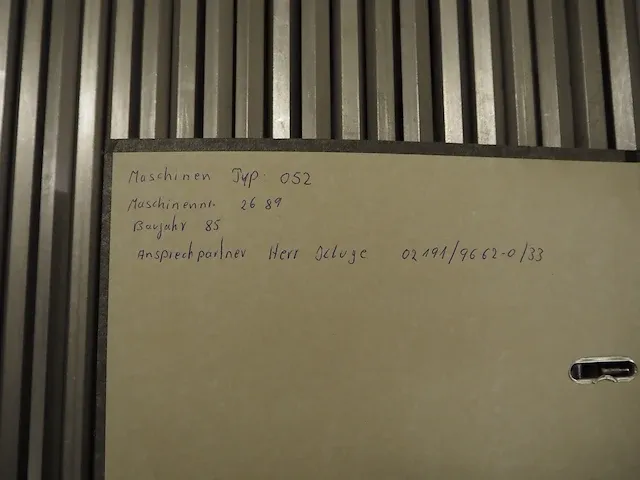 Maschinen Typ: 052
Maschinennr. 26 89
Baujahr 85
Ansprechpartner Herr 02191/9662-0/33